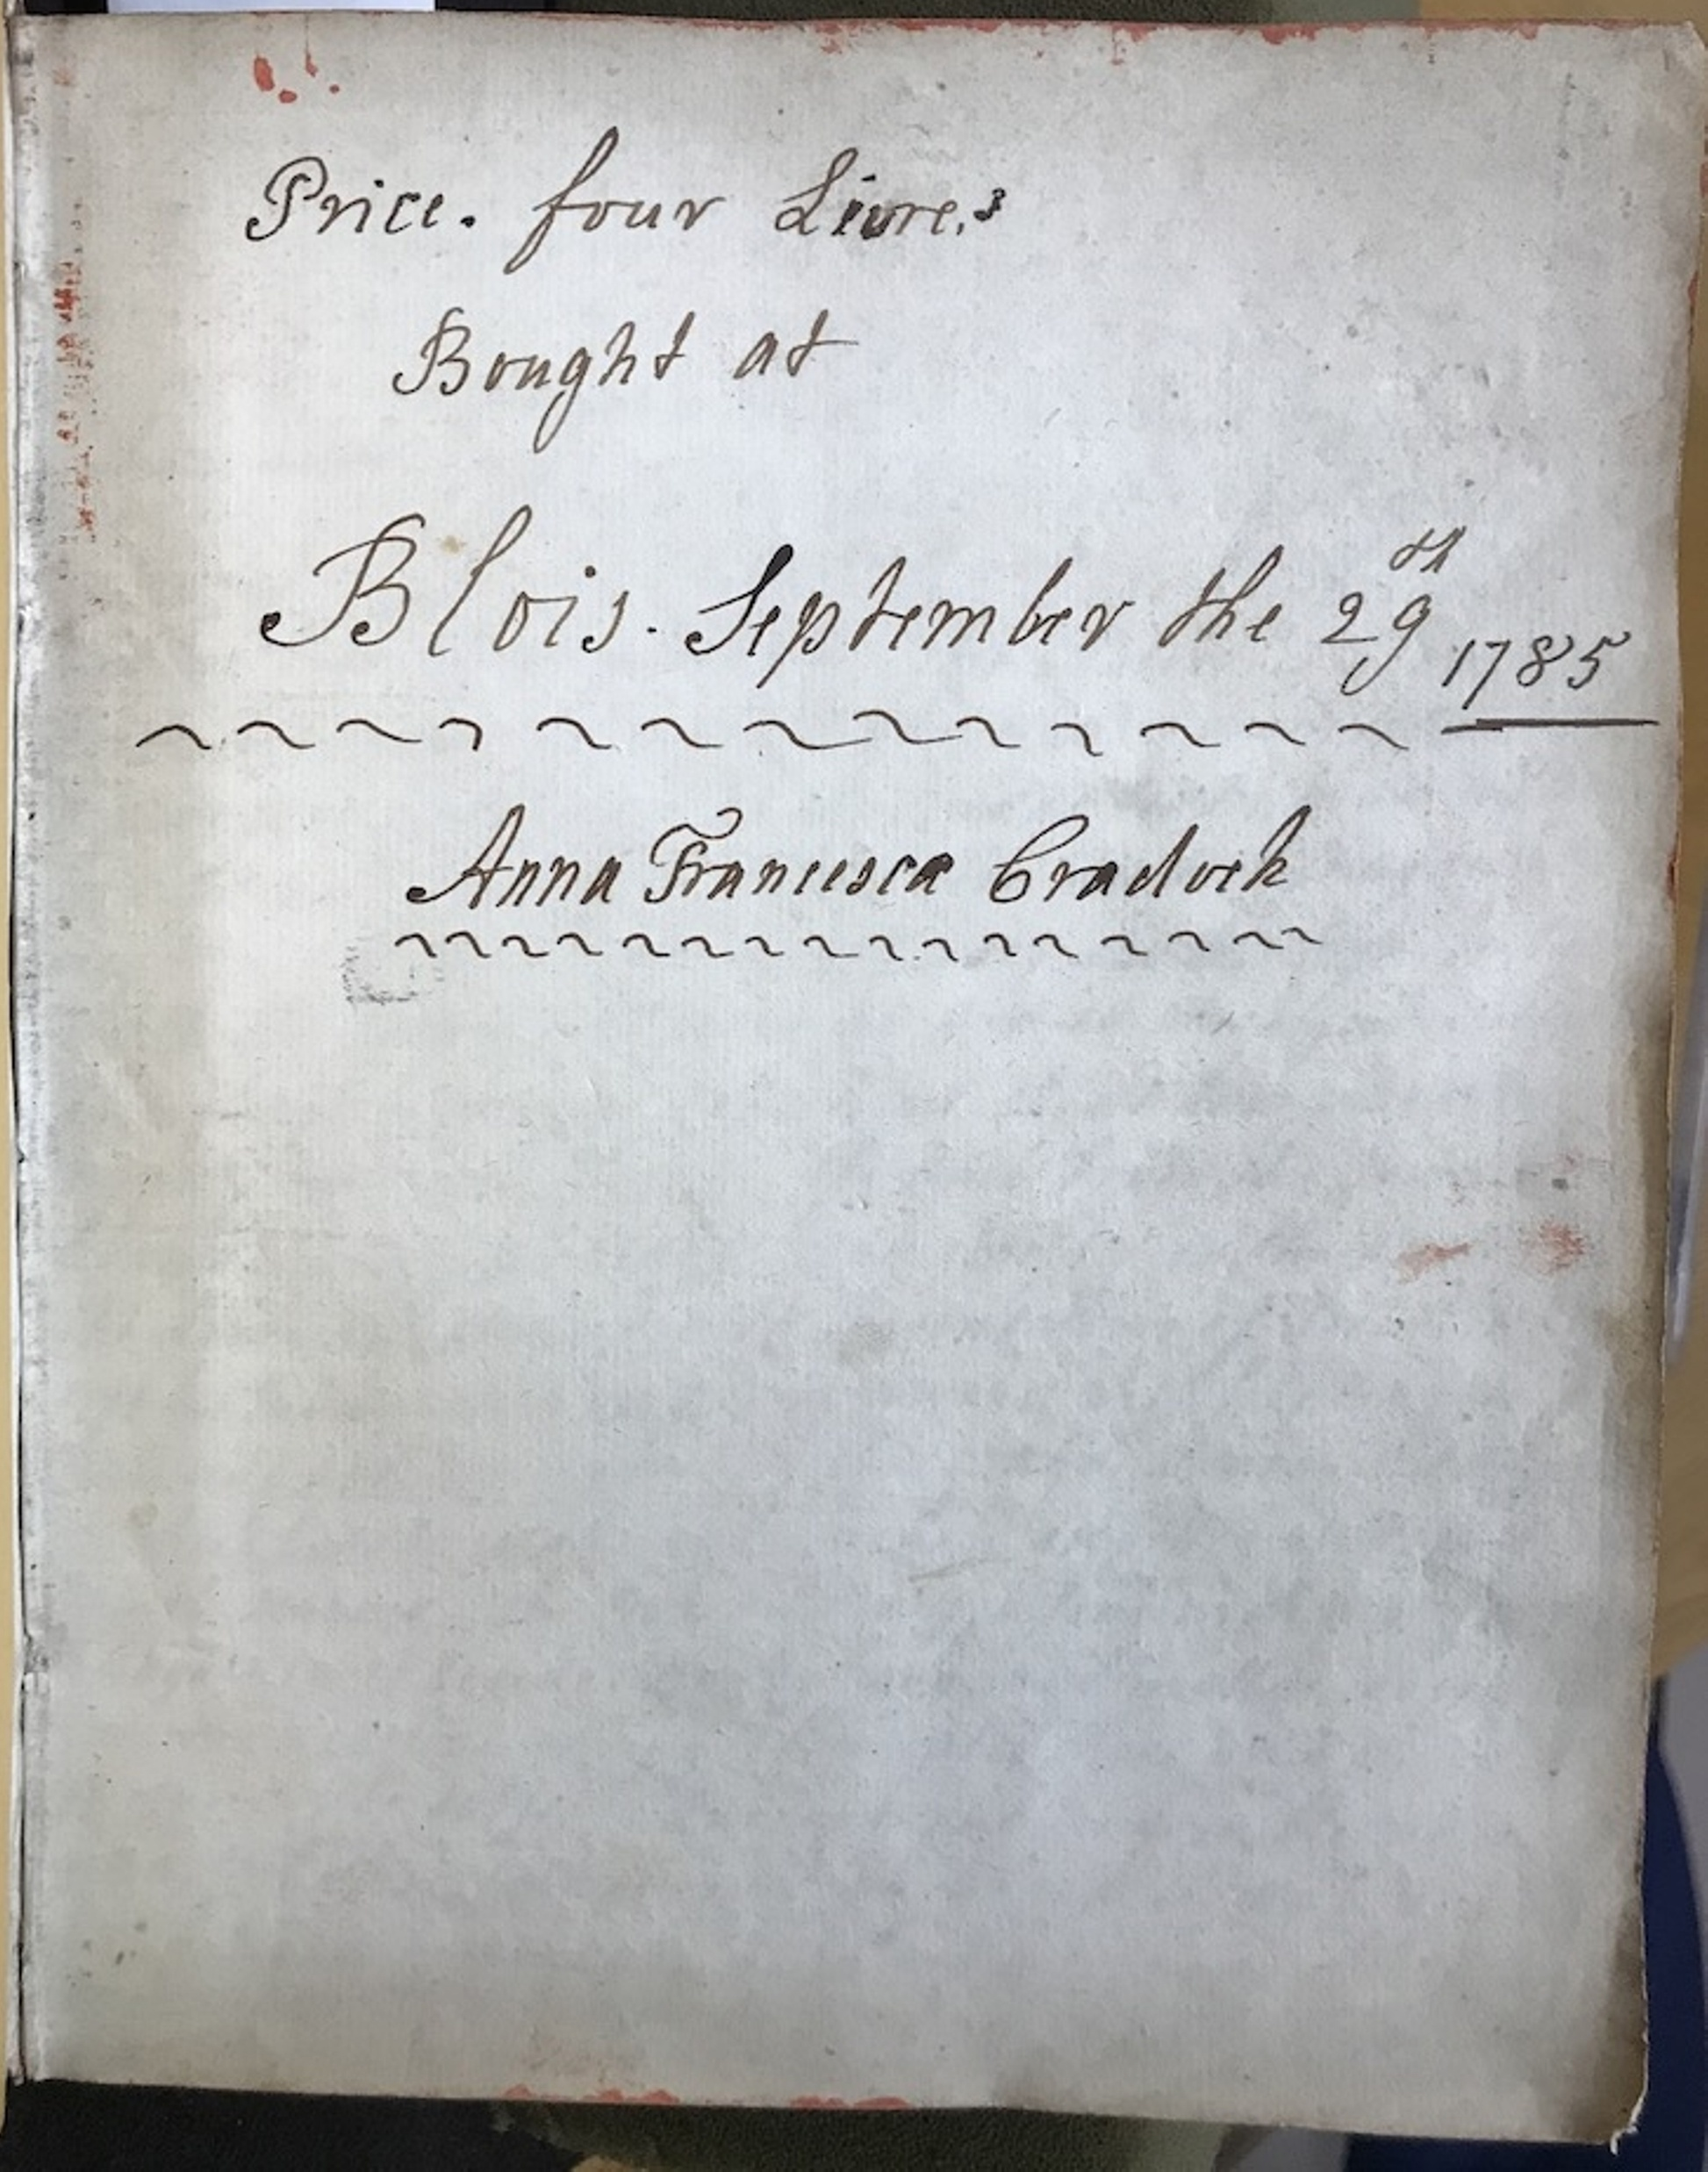 Price. four Livres
Bought at
Blois. September the 29th 1785
Anna Francesca Cradock